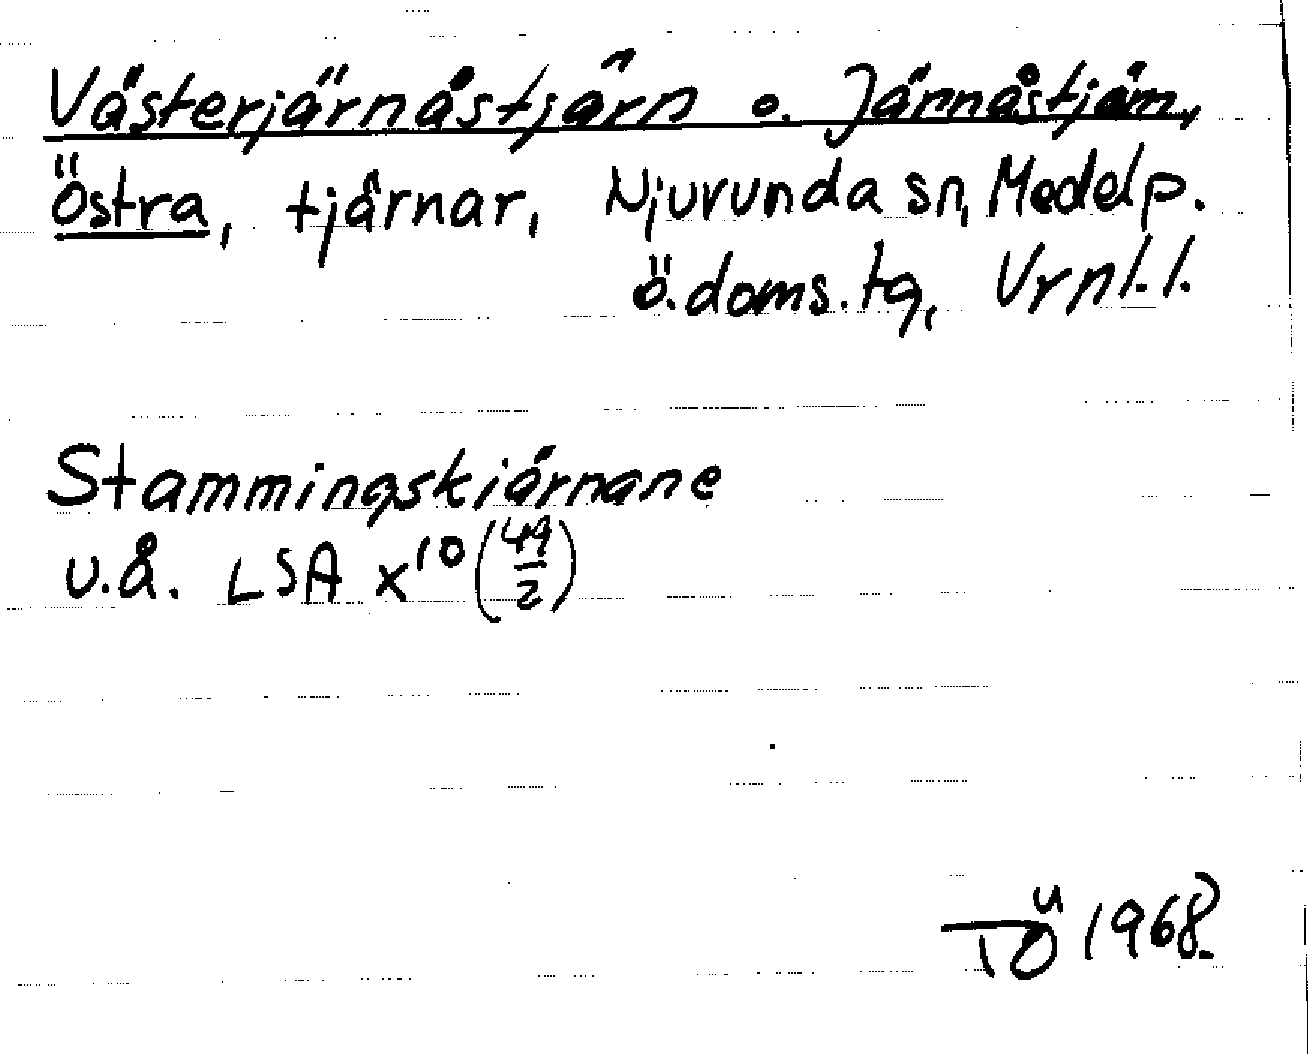 Västerjärnåstjärn o. Järnåstjärn,
Östra, tjärnar, Njurunda sn, Medelp.
ö. doms. tg, Vrnl. l.
Stammingskiärnane
u.å. LSA x¹⁰ (49/2)
TÖ 1968.